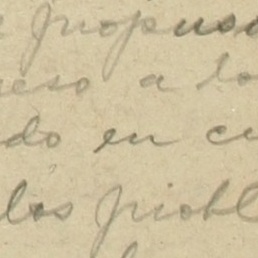 propuso
eso a lo
do en cu
los probl